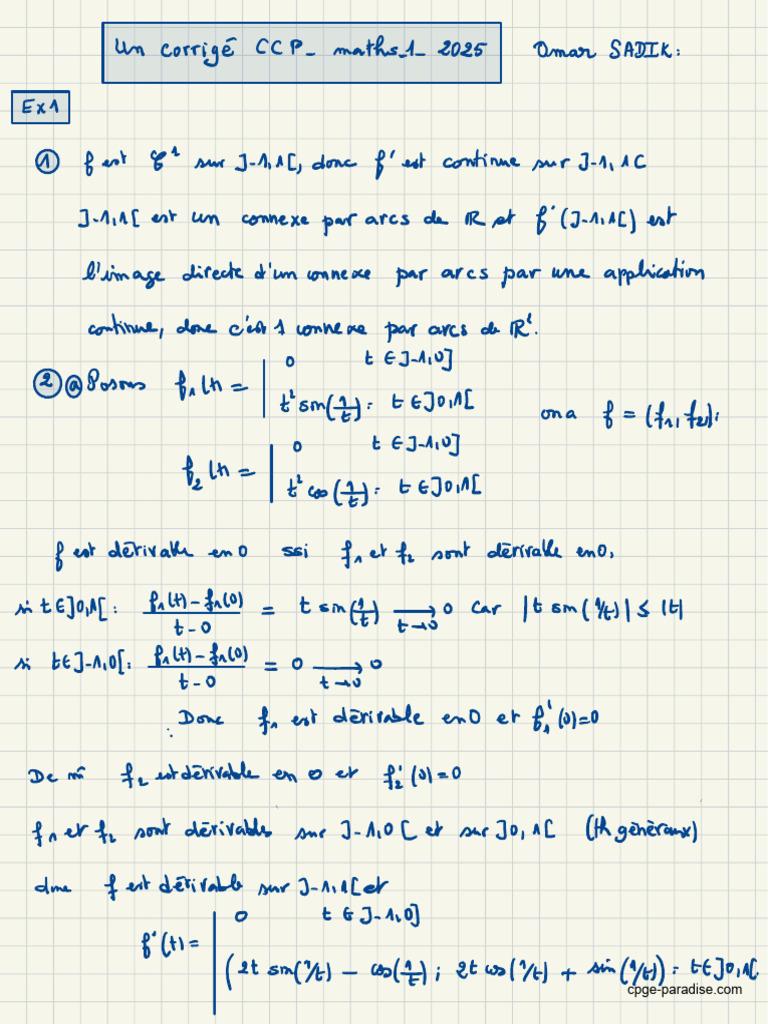 Un corrigé CCP_ maths_1_ 2025 Omar SADIK:
Ex1
① f est 𝒞¹ sur ]-1,1[, donc f' est continue sur ]-1,1[
]-1,1[ est un connexe par arcs de ℝ et f'(]-1,1[) est
l'image directe d'un connexe par arcs par une application
continue, donc c'est 1 connexe par arcs de ℝ².
② ⓐ Posons f₁(t) = | 0 t ∈ ]-1,0]
| t² sin(1/t): t ∈ ]0,1[ on a f = (f₁, f₂):
f₂(t) = | 0 t ∈ ]-1,0]
| t² cos(1/t): t ∈ ]0,1[
f est dérivable en 0 ssi f₁ et f₂ sont dérivable en 0,
si t ∈ ]0,1[: (f₁(t) - f₁(0))/(t - 0) = t sin(1/t) ⟶ 0 (t→0) car |t sin(1/t)| ≤ |t|
si t ∈ ]-1,0[: (f₁(t) - f₁(0))/(t - 0) = 0 ⟶ 0 (t→0)
Donc f₁ est dérivable en 0 et f₁'(0)=0
De m̂ f₂ est dérivable en 0 et f₂'(0)=0
f₁ et f₂ sont dérivables sur ]-1,0[ et sur ]0,1[ (th généraux)
donc f est dérivable sur ]-1,1[ et
f'(t) = | 0 t ∈ ]-1,0]
| (2t sin(1/t) - cos(1/t) ; 2t cos(1/t) + sin(1/t)): t ∈ ]0,1[
cpge-paradise.com